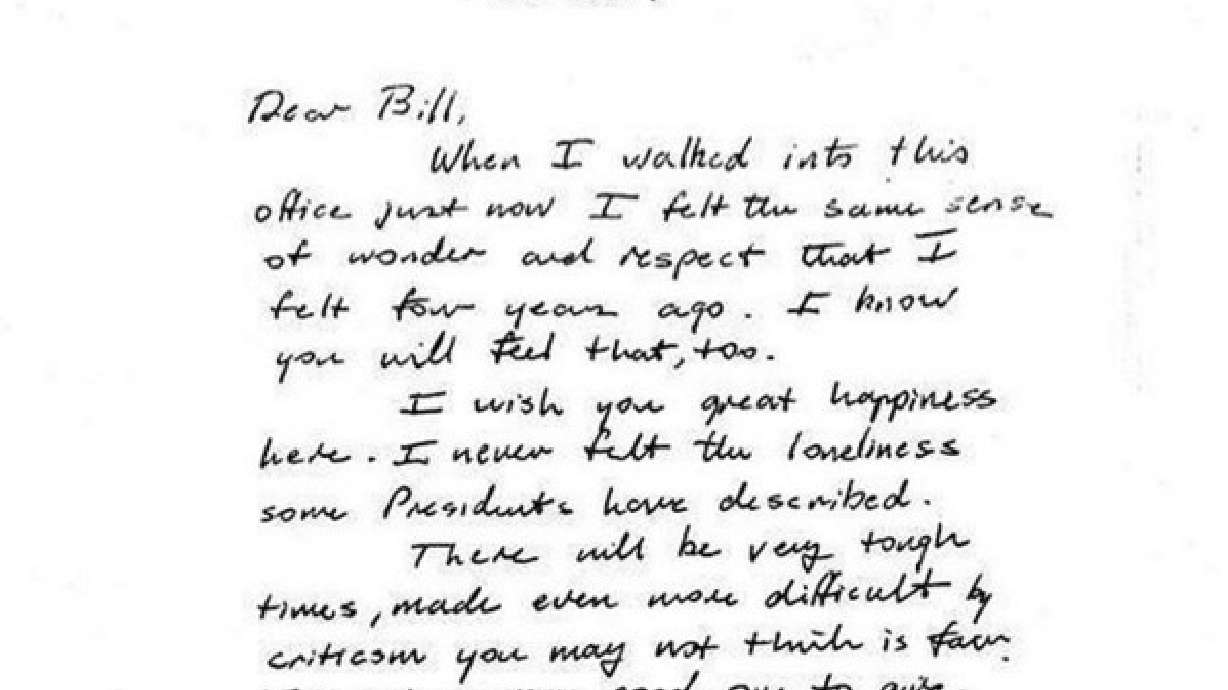 Dear Bill,
When I walked into this
office just now I felt the same sense
of wonder and respect that I
felt four years ago. I know
you will feel that, too.
I wish you great happiness
here. I never felt the loneliness
some Presidents have described.
There will be very tough
times, made even more difficult by
criticism you may not think is fair.